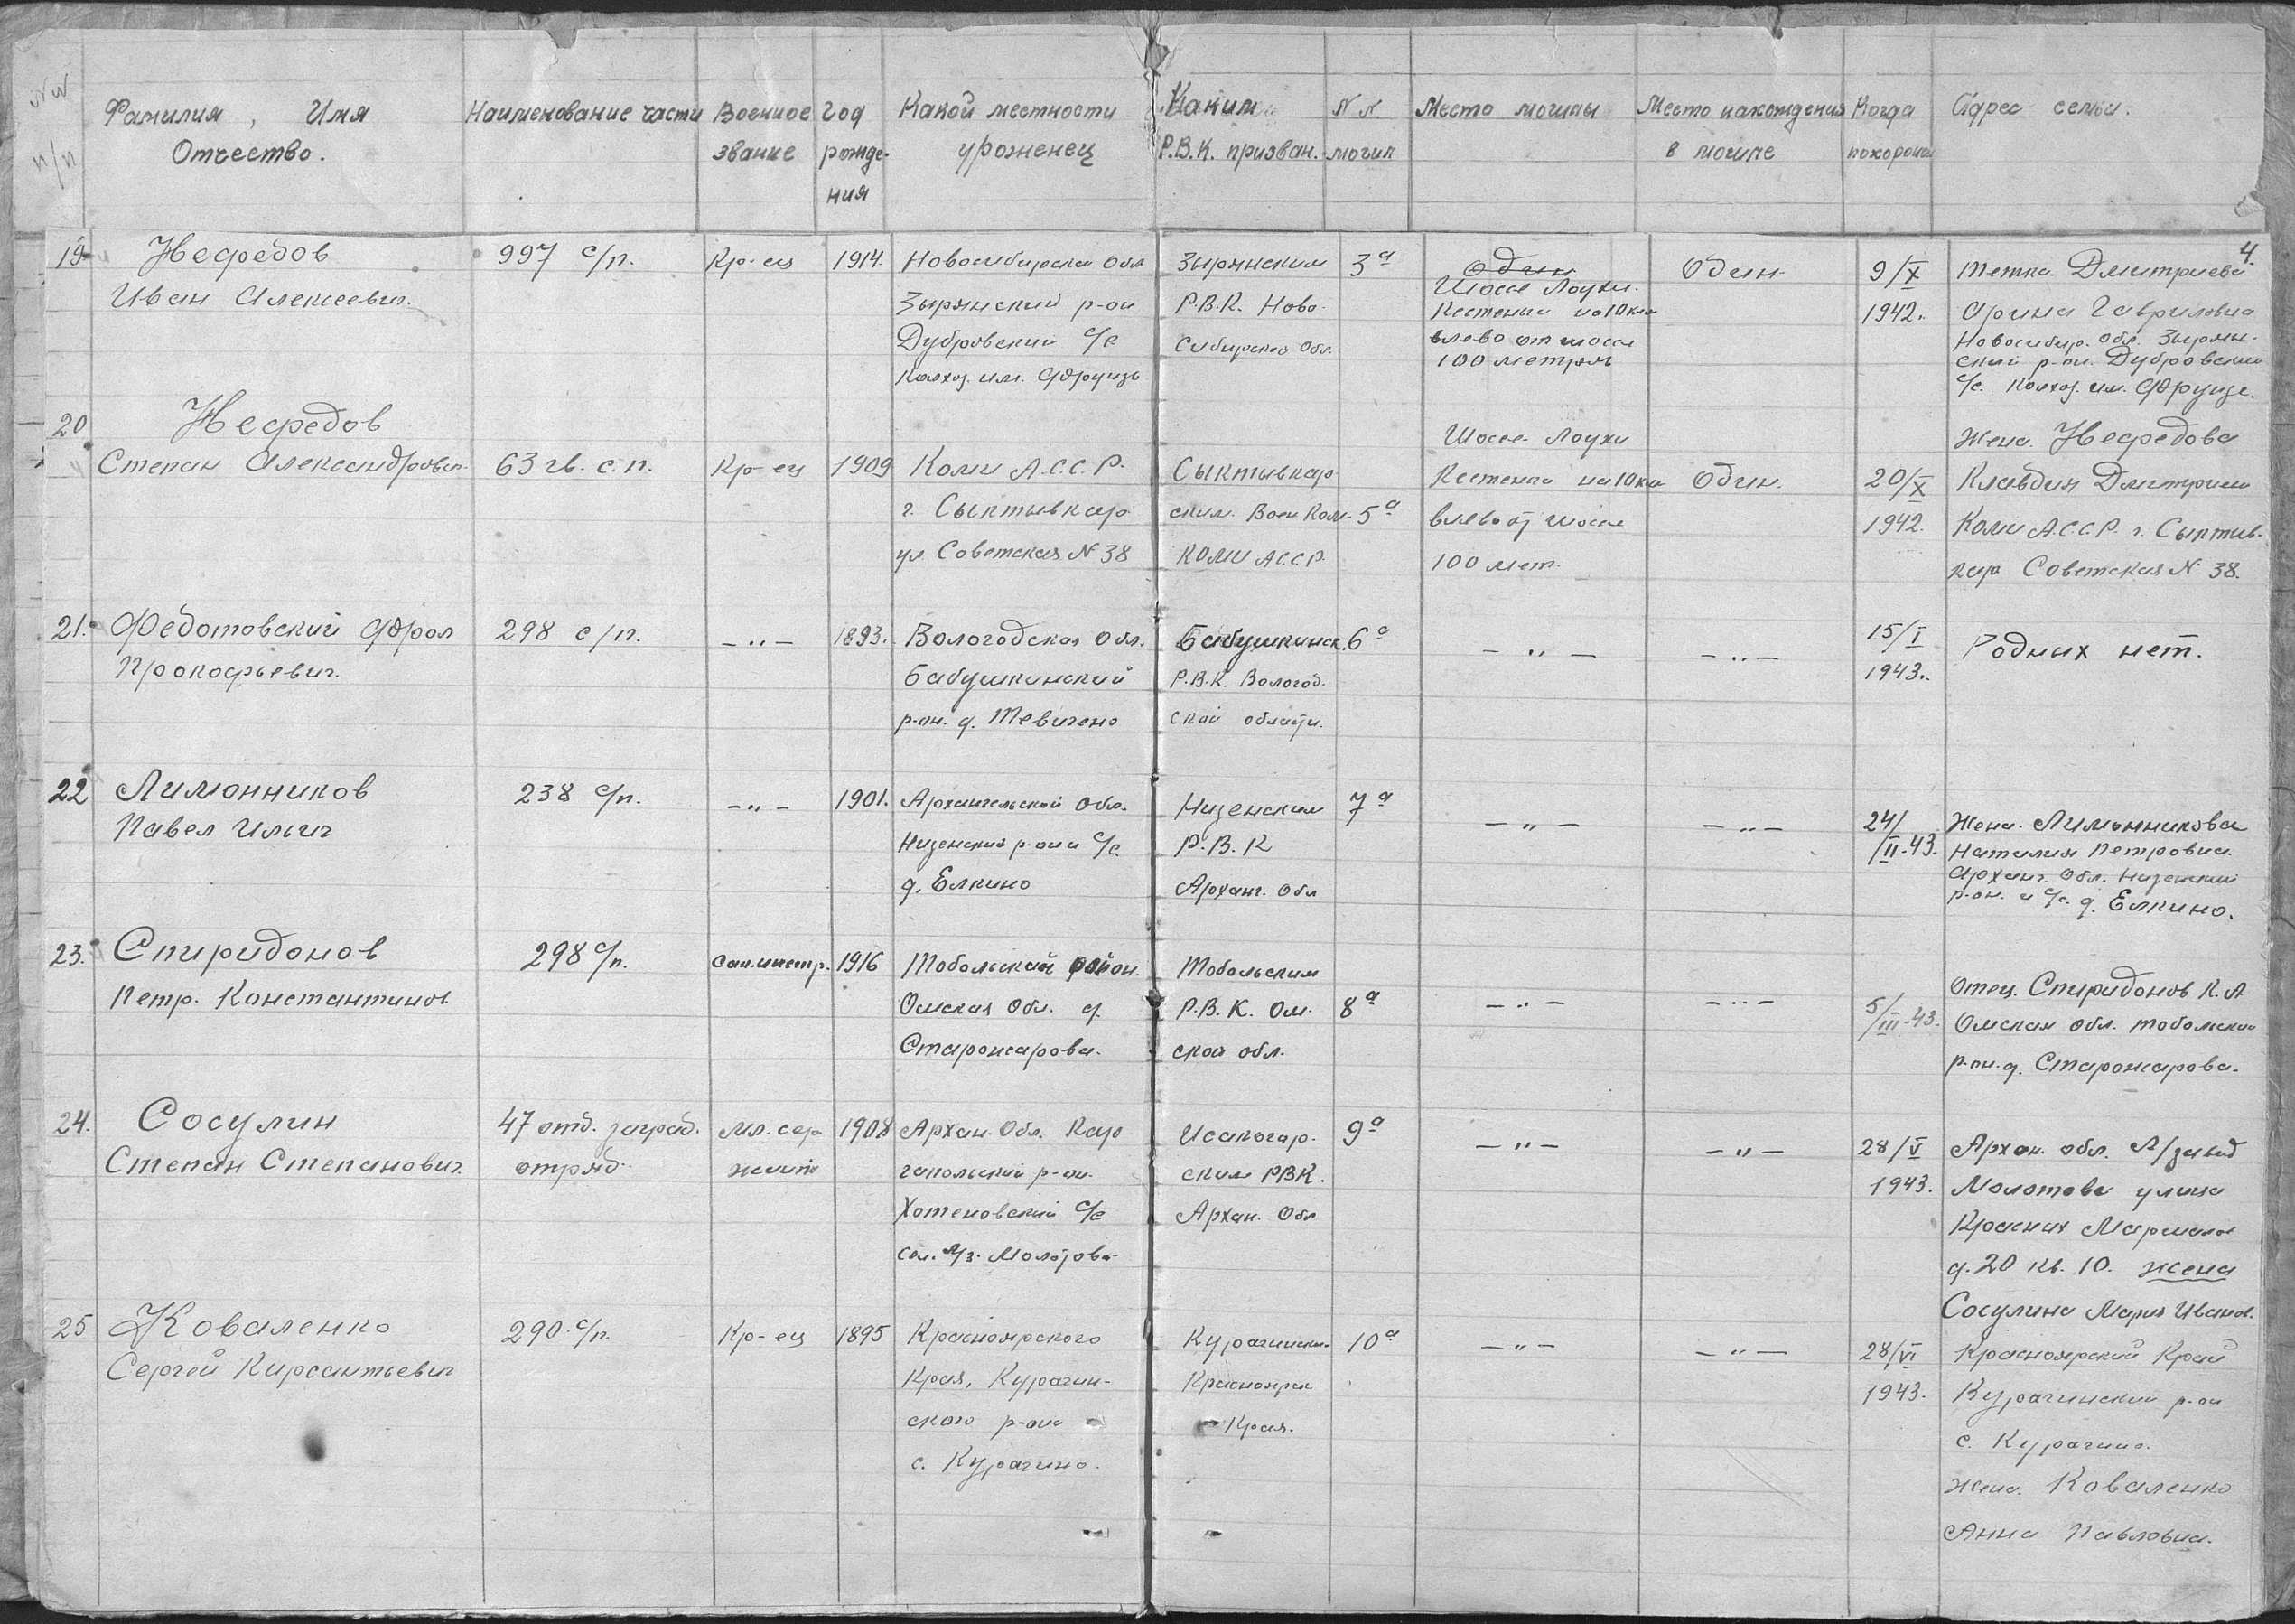 №№ п/п
Фамилия, Имя
Отчество.
Наименование части
Военное
звание
Год
рожде-
ния
Какой местности
уроженец
Каким
Р.В.К. призван.
N N
могил
Место могилы
Место нахождения
в могиле
Когда
похоронен
Адрес семьи.
4.
19
Нефедов
Иван Алексеевич.
997 с/п.
Кр-ец
1914.
Новосибирская Обл
Зырянский р-он
Дубровский с/с
Колхоз. им. Фрунзе
Зырянским
Р.В.К. Ново-
сибирской Обл.
3а
Один
Шоссе Лоухи.
Кестенга на 10 км
влево от шоссе
100 метров
Один
9/X
1942.
Тетка. Дмитриева
Арина Гавриловна
Новосибир. Обл. Зырян-
ский р-он. Дубровский
с/с. Колхоз. им. Фрунзе.
20
Нефедов
Степан Александрович.
63 гв. с.п.
Кр-ец
1909
Коми А.С.С.Р.
г. Сыктывкар
ул. Советская N 38
Сыктывкар
ским. Воен Ком.
Коми АССР.
5а
Шоссе Лоухи
Кестенга на 10 км
влево от шоссе
100 мет.
Один.
20/X
1942.
Жена. Нефедова
Клавдия Дмитриев
Коми А.С.С.Р. г. Сыктыв-
кар Советская N 38.
21.
Федотовский Фрол
Прокофьевич.
298 с/п.
-"-
1893.
Вологодская Обл.
Бабушкинский
р-он. д. Тевигено
Бабушкинск.
Р.В.К. Вологод.
ской области.
6а
-"-
-"-
15/I
1943.
Родных нет.
22
Лимонников
Павел Ильич
238 с/п.
-"-
1901.
Архангельской Обл.
Низенский р-он и с/с.
д. Елкино
Низенским
Р.В.К
Арханг. Обл
7а
-"-
-"-
24/II-43.
Жена. Лимонникова
Наталия Петровна.
Арханг. Обл. Низенский
р-он. и с/с. д. Елкино.
23.
Спиридонов
Петр. Константинов.
298 с/п.
Сан.инстр.
1916
Тобольский район.
Омская Обл. д.
Старожарова.
Тобольским
Р.В.К. Ом-
ской обл.
8а
-"-
-"-
5/III-43.
Отец. Спиридонов К.А
Омская обл. Тобольский
р-он. д. Старожарова.
24.
Сосулин
Степан Степанович.
47 отд. заград.
отряд.
Мл. сер
жант
1908
Архан. Обл. Кар
гапольский р-он.
Хотеновский с/с
сел. л/з. Молотова
Исакогор-
ским РВК.
Архан. Обл
9а
-"-
-"-
28/V
1943.
Архан. обл. Л/завод
Молотова улица
Красных Маршалов
д. 20 кв. 10. жена
Сосулина Мария Иванов.
25
Коваленко
Сергей Кирсантьевич
290 с/п.
Кр-ец
1895
Красноярского
Края, Курагин-
ского р-она
с. Курагино.
Курагинским.
Красноярск
Края.
10а
-"-
-"-
28/VI
1943.
Красноярский Край
Курагинский р-он
с. Курагино.
жена. Коваленко
Анна Павловна.